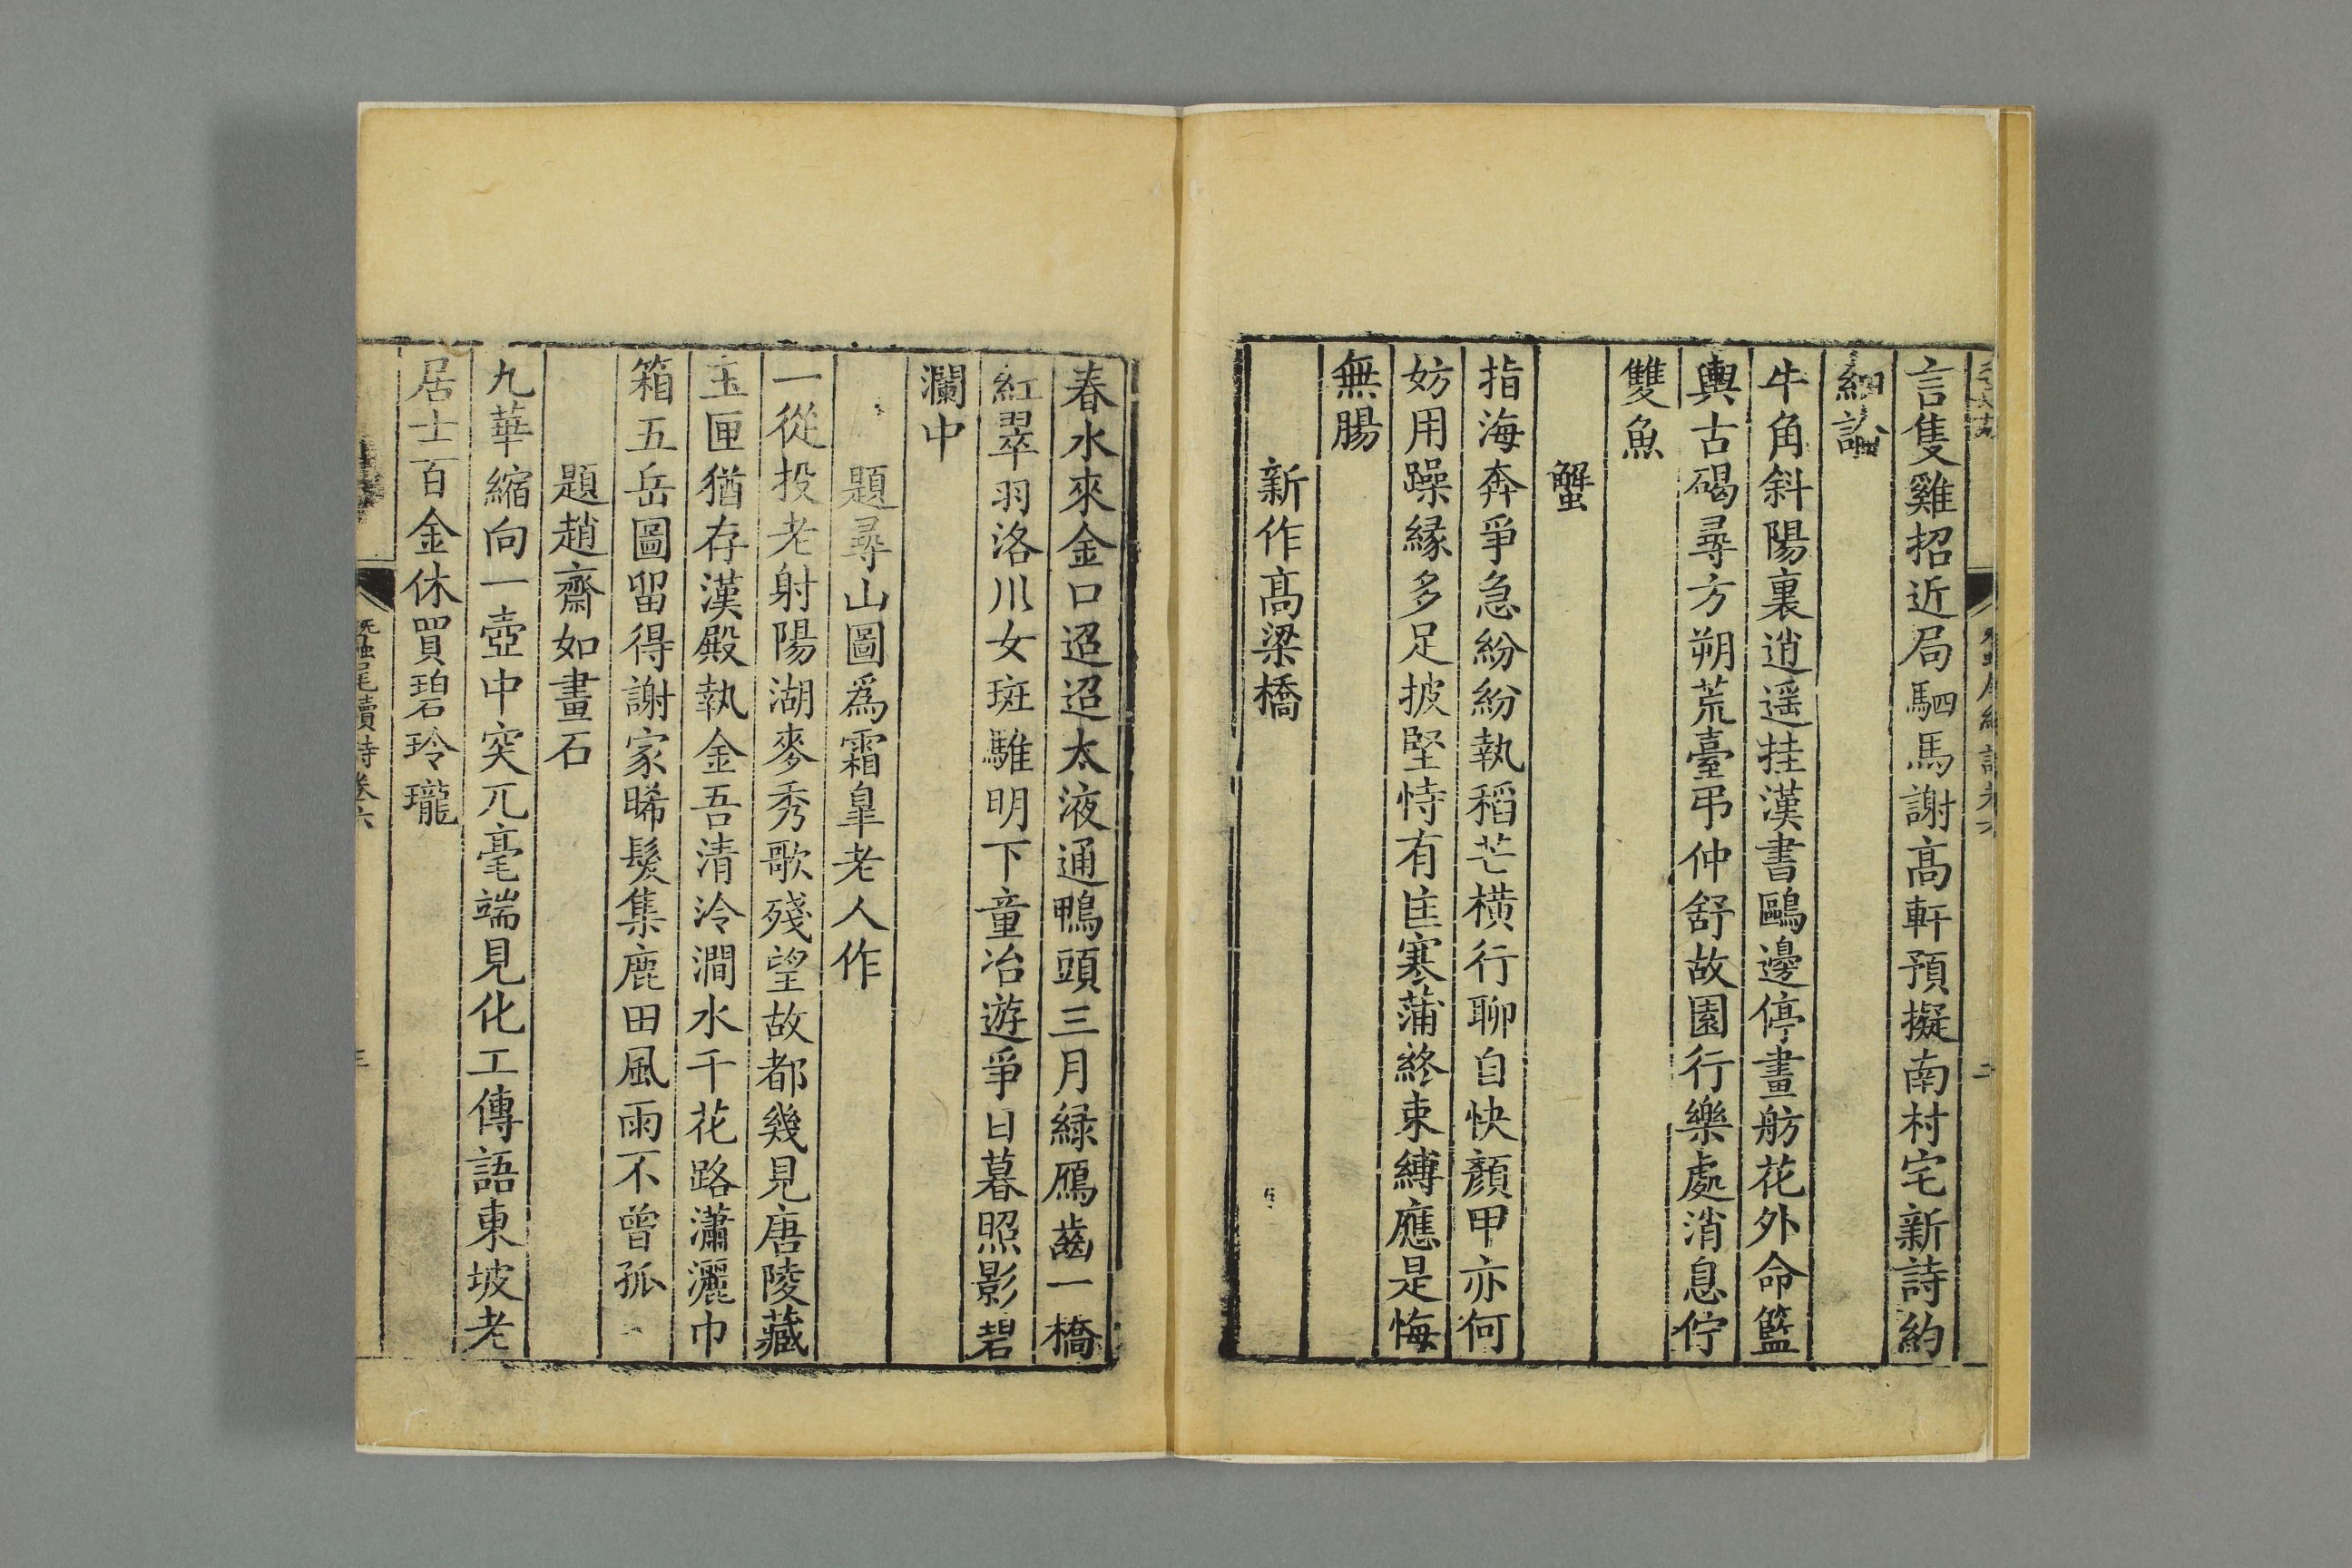 言隻雞招近局駟馬謝高軒預擬南村宅新詩約
細論
牛角斜陽裏逍遥挂漢書鷗邊停畫舫花外命籃
輿古碣尋方朔荒臺弔仲舒故園行樂處消息佇
雙魚
蟹
指海奔爭急紛紛執稻芒橫行聊自快顏甲亦何
妨用躁緣多足披堅恃有匡寒蒲終束縛應是悔
無腸
新作高梁橋
春水來金口迢迢太液通鴨頭三月綠鴈齒一橋
紅翠羽洛川女斑騅明下童冶遊爭日暮照影碧
瀾中
題尋山圖爲霜臯老人作
一從投老射陽湖麥秀歌殘望故都幾見唐陵藏
玉匣猶存漢殿執金吾清泠澗水千花路瀟灑巾
箱五岳圖留得謝家晞髮集鹿田風雨不曾孤
題趙齋如畫石
九華縮向一壺中突兀毫端見化工傳語東坡老
居士百金休買碧玲瓏
蠶尾續詩卷六